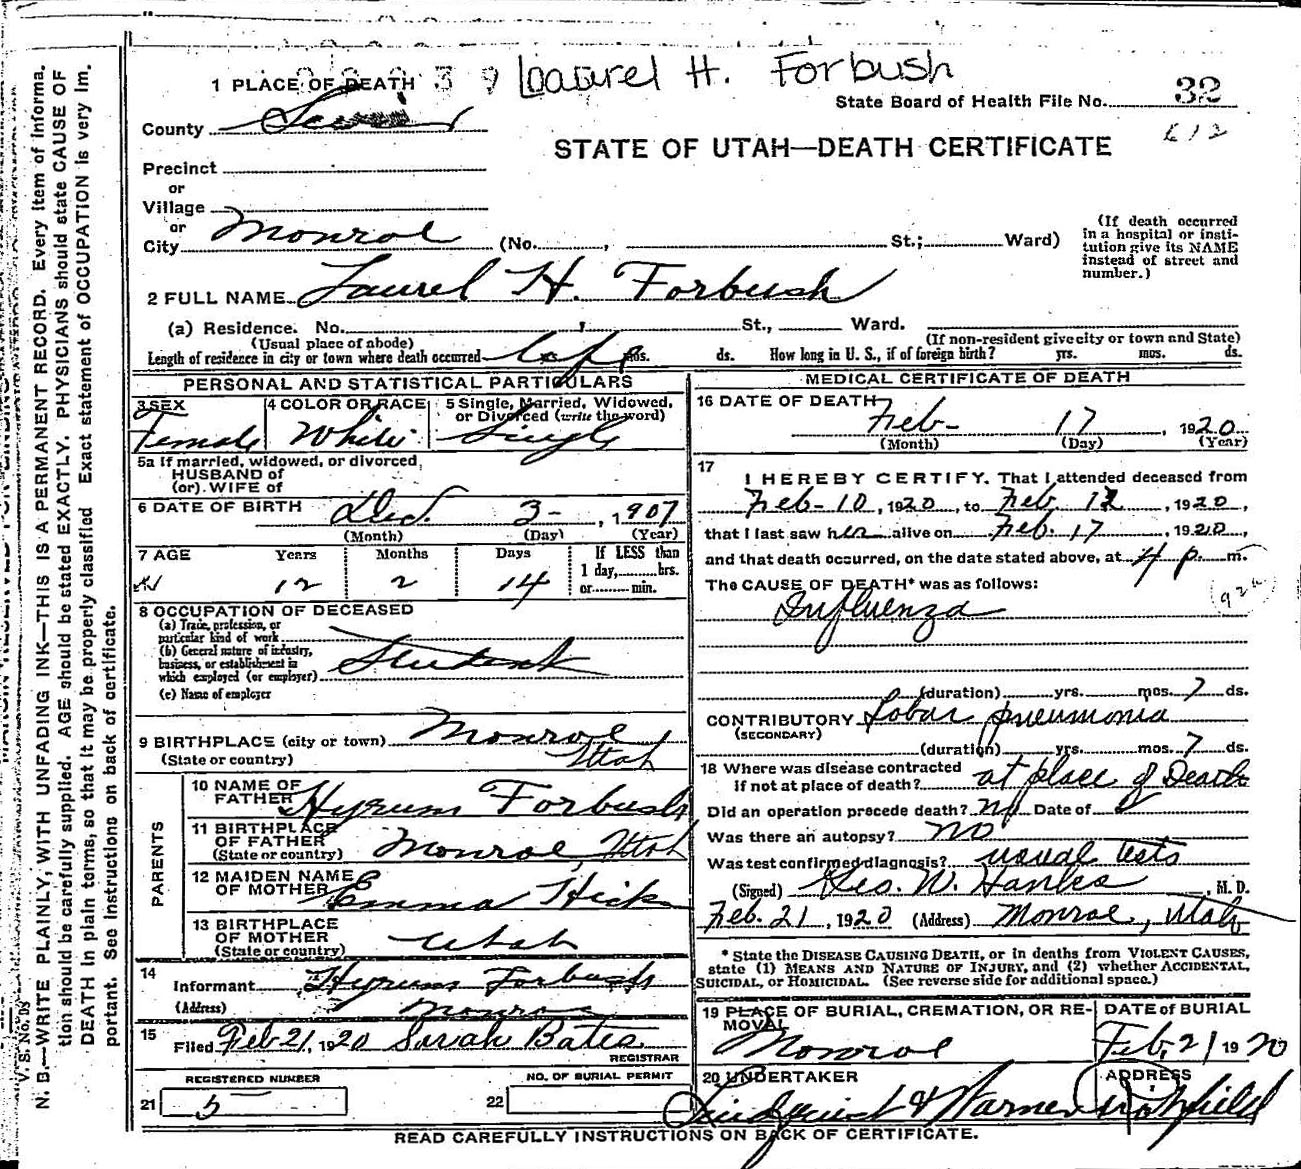 Laurel H. Forbush
1 PLACE OF DEATH 3 9
State Board of Health File No. 32
County Sevier
612
STATE OF UTAH—DEATH CERTIFICATE
Precinct
or
Village
or
City Monroe (No. , St.; Ward)
(If death occurred
in a hospital or insti-
tution give its NAME
instead of street and
number.)
2 FULL NAME Laurel H. Forbush
(a) Residence. No. , St., Ward.
(Usual place of abode) (If non-resident give city or town and State)
Length of residence in city or town where death occurred Life mos. ds. How long in U. S., if of foreign birth? yrs. mos. ds.
PERSONAL AND STATISTICAL PARTICULARS
3 SEX 4 COLOR OR RACE 5 Single, Married, Widowed,
or Divorced (write the word)
Female White Single
5a If married, widowed, or divorced
HUSBAND of
(or) WIFE of
6 DATE OF BIRTH Dec. 3- , 1907
(Month) (Day) (Year)
7 AGE Years Months Days If LESS than
1 day, hrs.
or min.
12 2 14
8 OCCUPATION OF DECEASED
(a) Trade, profession, or
particular kind of work
(b) General nature of industry,
business, or establishment in
which employed (or employer) Student
(c) Name of employer
9 BIRTHPLACE (city or town) Monroe
(State or country) Utah
PARENTS
10 NAME OF
FATHER Hyrum Forbush
11 BIRTHPLACE
OF FATHER
(State or country) Monroe, Utah
12 MAIDEN NAME
OF MOTHER Emma Hicks
13 BIRTHPLACE
OF MOTHER
(State or country) Utah
14
Informant Hyrum Forbush
(Address) Monroe
15
Filed Feb 21, 1920 Sarah Bates
REGISTRAR
REGISTERED NUMBER NO. OF BURIAL PERMIT
21 5 22
MEDICAL CERTIFICATE OF DEATH
16 DATE OF DEATH
Feb- 17 , 1920
(Month) (Day) (Year)
17
I HEREBY CERTIFY. That I attended deceased from
Feb-10, 1920, to Feb , 1920,
that I last saw her alive on Feb. 17 , 1920,
and that death occurred, on the date stated above, at 4 p. m.
The CAUSE OF DEATH* was as follows:
Influenza
(duration) yrs. mos. 7 ds.
CONTRIBUTORY Lobar pneumonia
(SECONDARY)
(duration) yrs. mos. 7 ds.
18 Where was disease contracted
if not at place of death? at place of Death
Did an operation precede death? no Date of
Was there an autopsy? no
Was test confirmed diagnosis? usual tests
(Signed) Geo. W. Hanks , M. D.
Feb. 21, 1920 (Address) Monroe, Utah
* State the DISEASE CAUSING DEATH, or in deaths from VIOLENT CAUSES,
state (1) MEANS AND NATURE OF INJURY, and (2) whether ACCIDENTAL,
SUICIDAL, or HOMICIDAL. (See reverse side for additional space.)
19 PLACE OF BURIAL, CREMATION, OR RE-
MOVAL
Monroe
DATE of BURIAL
Feb, 21 1920
20 UNDERTAKER ADDRESS
Lindquist & Warner Richfield
READ CAREFULLY INSTRUCTIONS ON BACK OF CERTIFICATE.
V. S. No. D5
N. B.—WRITE PLAINLY, WITH UNFADING INK—THIS IS A PERMANENT RECORD. Every item of informa-
tion should be carefully supplied. AGE should be stated EXACTLY. PHYSICIANS should state CAUSE OF
DEATH in plain terms, so that it may be properly classified. Exact statement of OCCUPATION is very im-
portant. See instructions on back of certificate.